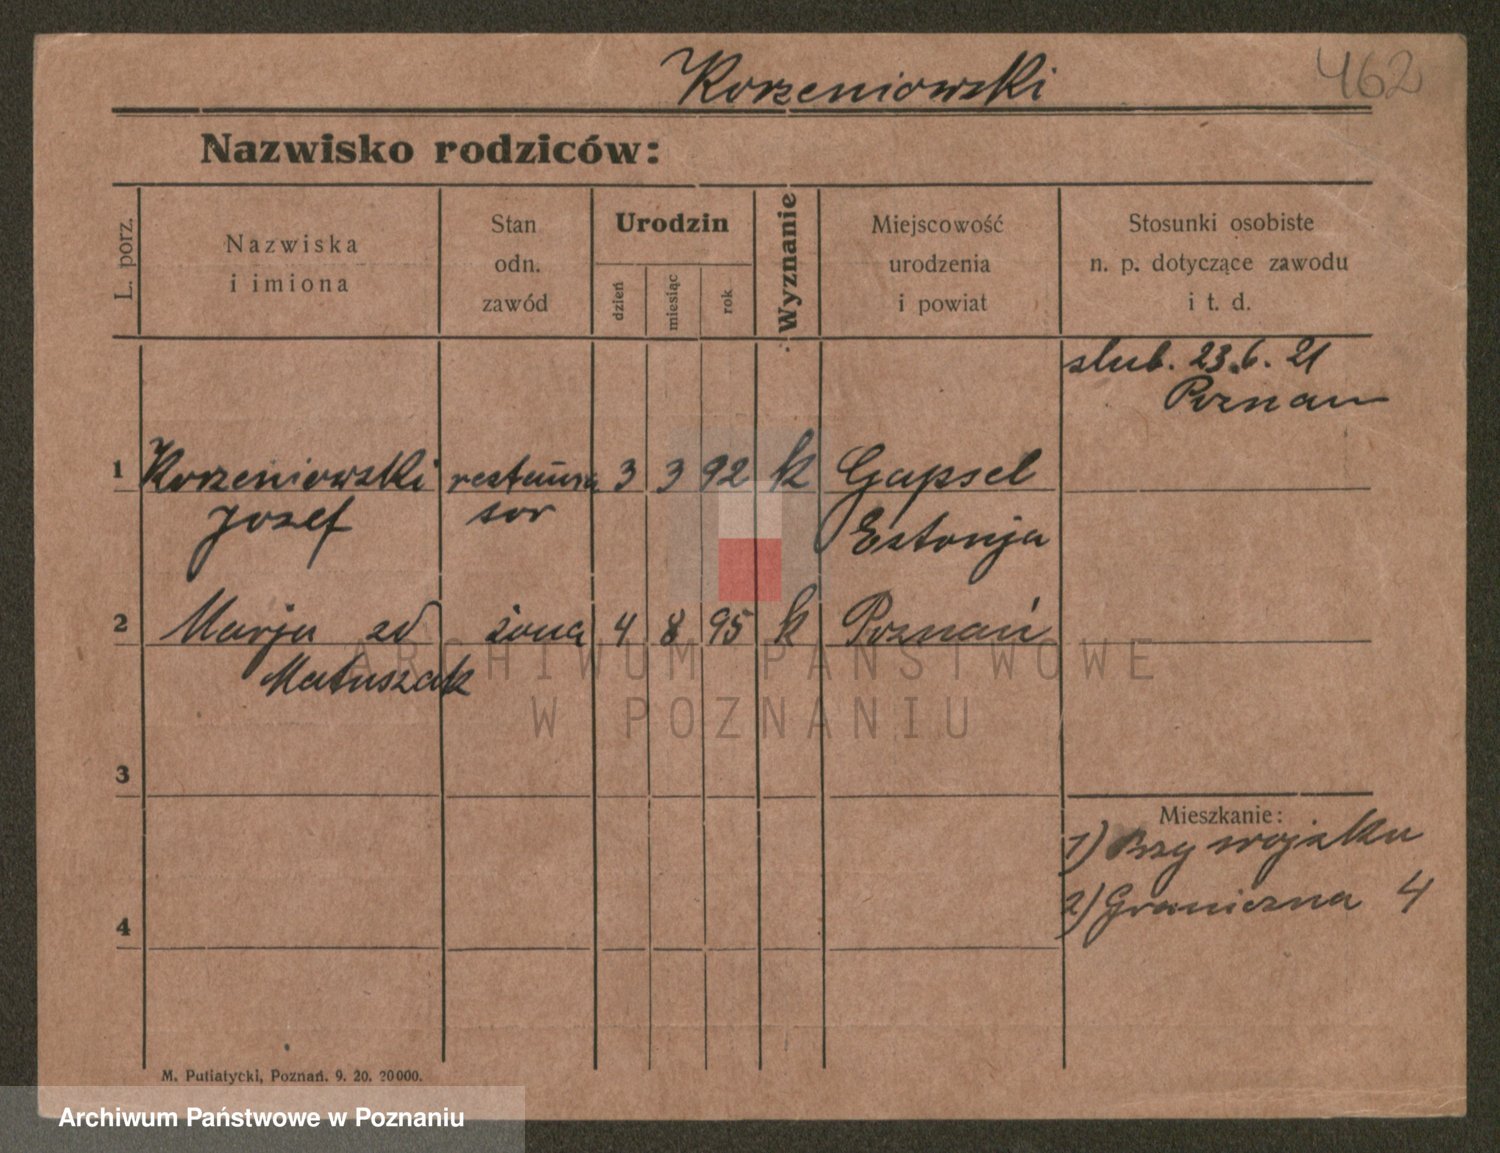 Korzeniowski
462
Nazwisko rodziców:
L. porz.
Nazwiska
i imiona
Stan
odn.
zawód
Urodzin
dzień
miesiąc
rok
Wyznanie
Miejscowość
urodzenia
i powiat
Stosunki osobiste
n. p. dotyczące zawodu
i t. d.
slub. 23.6.21
Poznan
1 Korzeniowski restaura 3 3 92 k Gapsel
Jozef tor Estonja
2 Marja zd żona 4 8 95 k Poznań
Matuszak
3
4
Mieszkanie:
1) Przy wojsku
2) Graniczna 4
M. Putiatycki, Poznań. 9. 20. 20000.
ARCHIWUM PAŃSTWOWE
W POZNANIU
Archiwum Państwowe w Poznaniu